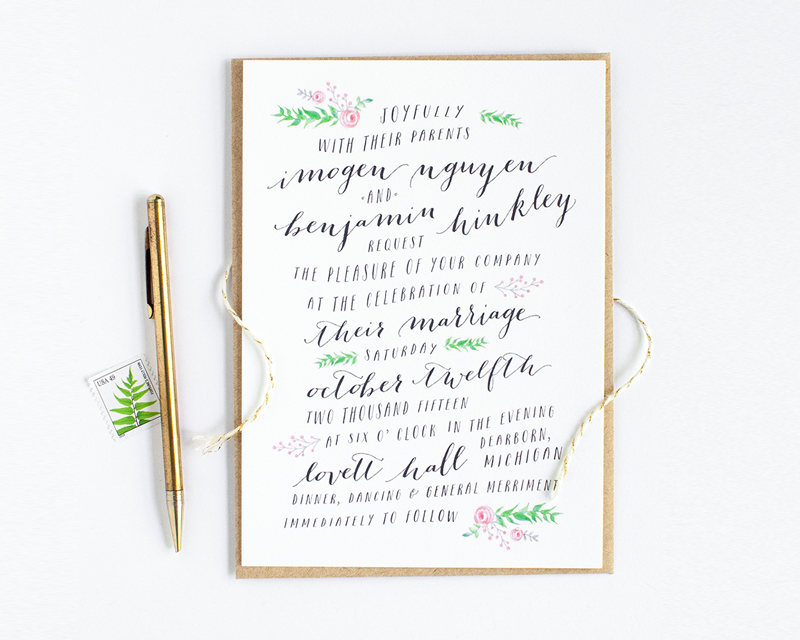 JOYFULLY
WITH THEIR PARENTS
imogen nguyen
AND
benjamin hinkley
REQUEST
THE PLEASURE OF YOUR COMPANY
AT THE CELEBRATION OF
their marriage
SATURDAY
october twelfth
TWO THOUSAND FIFTEEN
AT SIX O' CLOCK IN THE EVENING
lovett hall DEARBORN,
MICHIGAN
DINNER, DANCING & GENERAL MERRIMENT
IMMEDIATELY TO FOLLOW
USA 49